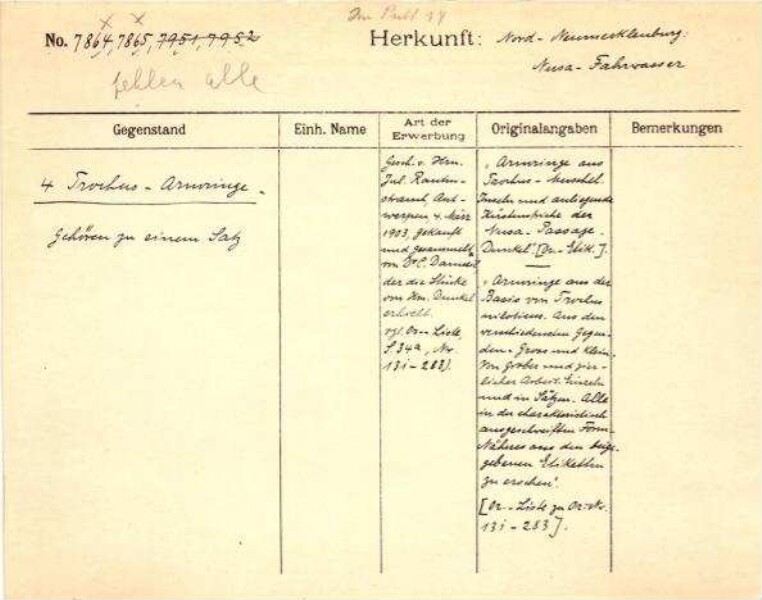 Im Pult 34
No. 7864, 7865, 7951, 7952
fehlen alle
Herkunft: Nord-Neumecklenburg:
Nusa-Fahrwasser
Gegenstand
Einh. Name
Art der
Erwerbung
Originalangaben
Bemerkungen
4 Trochus-Armringe.
Gehören zu einem Satz
Gesch. v. Hrn.
Jul. Rauten-
strauch, Ant-
werpen, 4. März
1903, gekauft
und gesammelt
von Dr C.
der die Stücke
von Hrn. Dunkel
erhielt.
vgl. Or-Liste,
S. 34a, Nr.
13i-283).
"Armringe aus
Trochus-Muschel.
Inseln und anliegende
Küstenstriche der
Nusa-Passage.
Dunkel". [Or.-Etik.].
"Armringe aus der
Basis von Trochus
niloticus. Aus den
verschiedensten Gegen-
den. Gross und Klein.
Von grober und zier-
licher Arbeit. Einzeln
und in Sätzen. Alle
in der charakteristisch
ausgeschweiften Form.
Näheres aus den beige-
gebenen Etiketten
zu ersehen".
[Or.-Liste zu Or.-Nr.
13i-283].